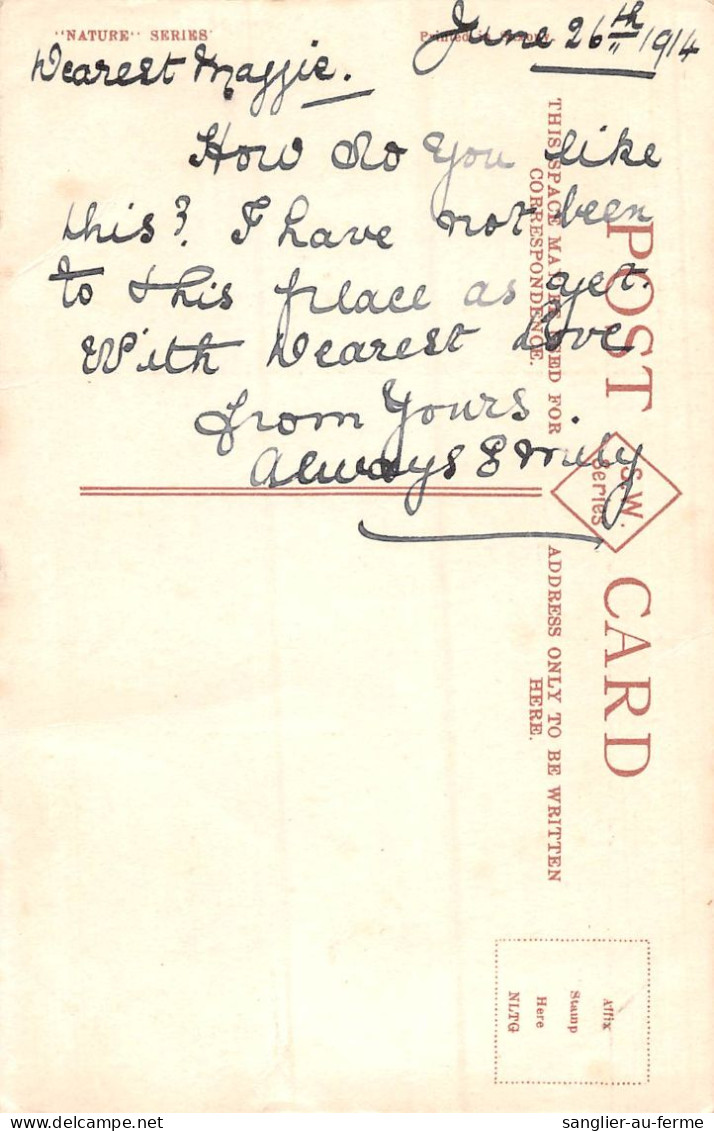 "NATURE" SERIES
Printed in Saxony.
June 26th 1914
Dearest Maggie.
How do you like
this? I have not been
to this place as yet.
With Dearest Love
from Yours
Always Emily
POST CARD
S.W.
Series
THIS SPACE MAY BE USED FOR
CORRESPONDENCE.
ADDRESS ONLY TO BE WRITTEN
HERE.
Affix
Stamp
Here
NLTG
sanglier-au-ferme